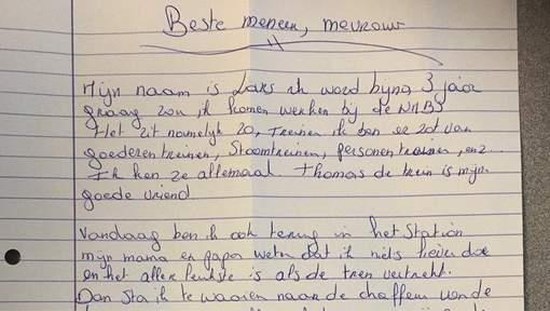 Beste meneer, mevrouw
Mijn naam is Lars ik word byna 3 jaar
graag zou ik komen werken bij de NMBS
Het zit namelijk zo, Treinen ik ben ze zot van
goederentreinen, Stoomtreinen, personentreinen, enz...
Ik ken ze allemaal. Thomas de trein is mijn
goede vriend
Vandaag ben ik ook terug in het Station
mijn mama en papa weten dat ik niets liever doe
en het aller leukste is als de trein vertrekt.
Dan sta ik te waaien naar de chauffeur van de